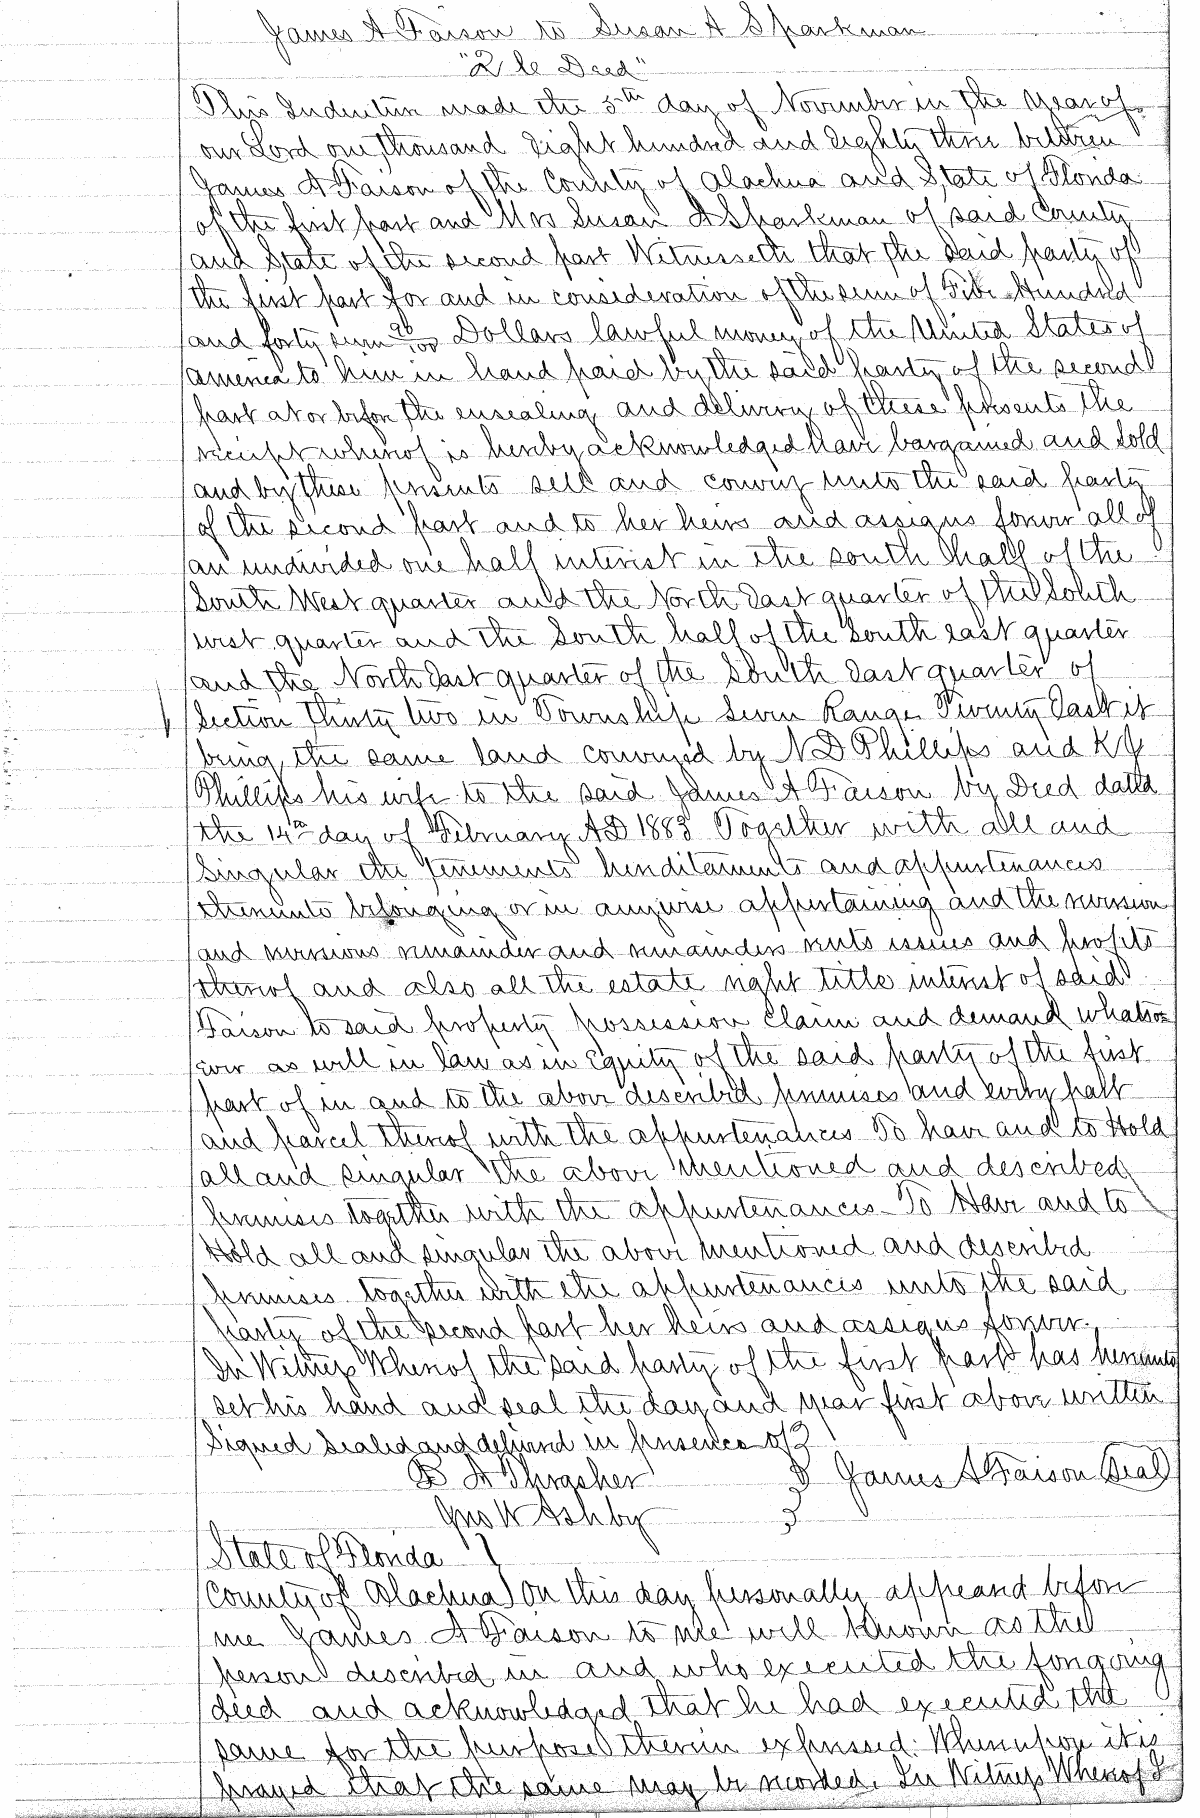 James A Faison to Susan A Sparkman
"2 le Deed"
This Indenture made the 5th day of November in the year of
our Lord one thousand Eight hundred and Eighty three between
James A Faison of the County of Alachua and State of Florida
of the first part and Mrs Susan A Sparkman of said County
and State of the second part Witnesseth that the said party of
the first part for and in consideration of the sum of Five Hundred
and forty seven /100 Dollars lawful money of the United States of
America to him in hand paid by the said party of the second
part at or before the ensealing and delivery of these presents the
receipt whereof is hereby acknowledged have bargained and sold
and by these presents sell and convey unto the said party
of the second part and to her heirs and assigns forever all of
an undivided one half interest in the south half of the
South West quarter and the North East quarter of the South
west quarter and the South half of the South east quarter
and the North East quarter of the South East quarter of
Section Thirty two in Township Seven Range Twenty East it
being the same land conveyed by N D Phillips and K J
Phillips his wife to the said James A Faison by Deed dated
the 14th day of February AD 1883 Together with all and
Singular the tenements hereditaments and appurtenances
thereunto belonging or in anywise appertaining and the reversion
and reversions remainder and remainders rents issues and profits
thereof and also all the estate right title interest of said
Faison to said property possession claim and demand whatso
ever as well in law as in Equity of the said party of the first
part of in and to the above described premises and every part
and parcel thereof with the appurtenances To have and to Hold
all and singular the above mentioned and described
premises together with the appurtenances - To Have and to
Hold all and singular the above mentioned and described
premises together with the appurtenances unto the said
party of the second part her heirs and assigns forever.
In Witness Whereof the said party of the first part has hereunto
set his hand and seal the day and year first above written
Signed Sealed and delivered in presence of }
B A Thrasher } James A Faison Seal
Jno W Ashby }
State of Florida }
County of Alachua } On this day personally appeared before
me James A Faison to me well known as the
person described in and who executed the foregoing
deed and acknowledged that he had executed the
same for the purpose therein expressed: Whereupon it is
prayed that the same may be recorded. In Witness Whereof I